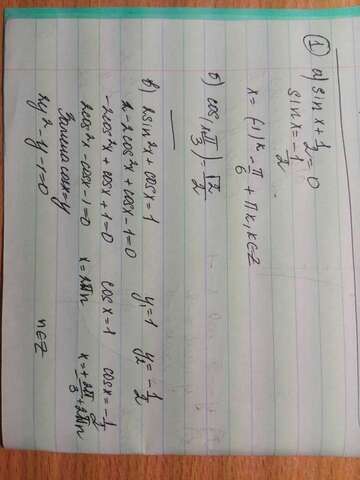 ① а) sin x + 1/2 = 0
sin x = -1/2
x = (-1)^k · -π/6 + πk, k∈Z
б) cos(x π/3) - √2/2
в) 2sin²x + cosx = 1
2 - 2cos²x + cosx - 1 = 0
-2cos²x + cosx + 1 = 0
2cos²x - cosx - 1 = 0
Замена cosx = y
2y² - y - 1 = 0
y₁ = 1 y₂ = -1/2
cosx = 1 cosx = -1/2
x = 2πn x = ± 2π/3 + 2πn
n∈Z